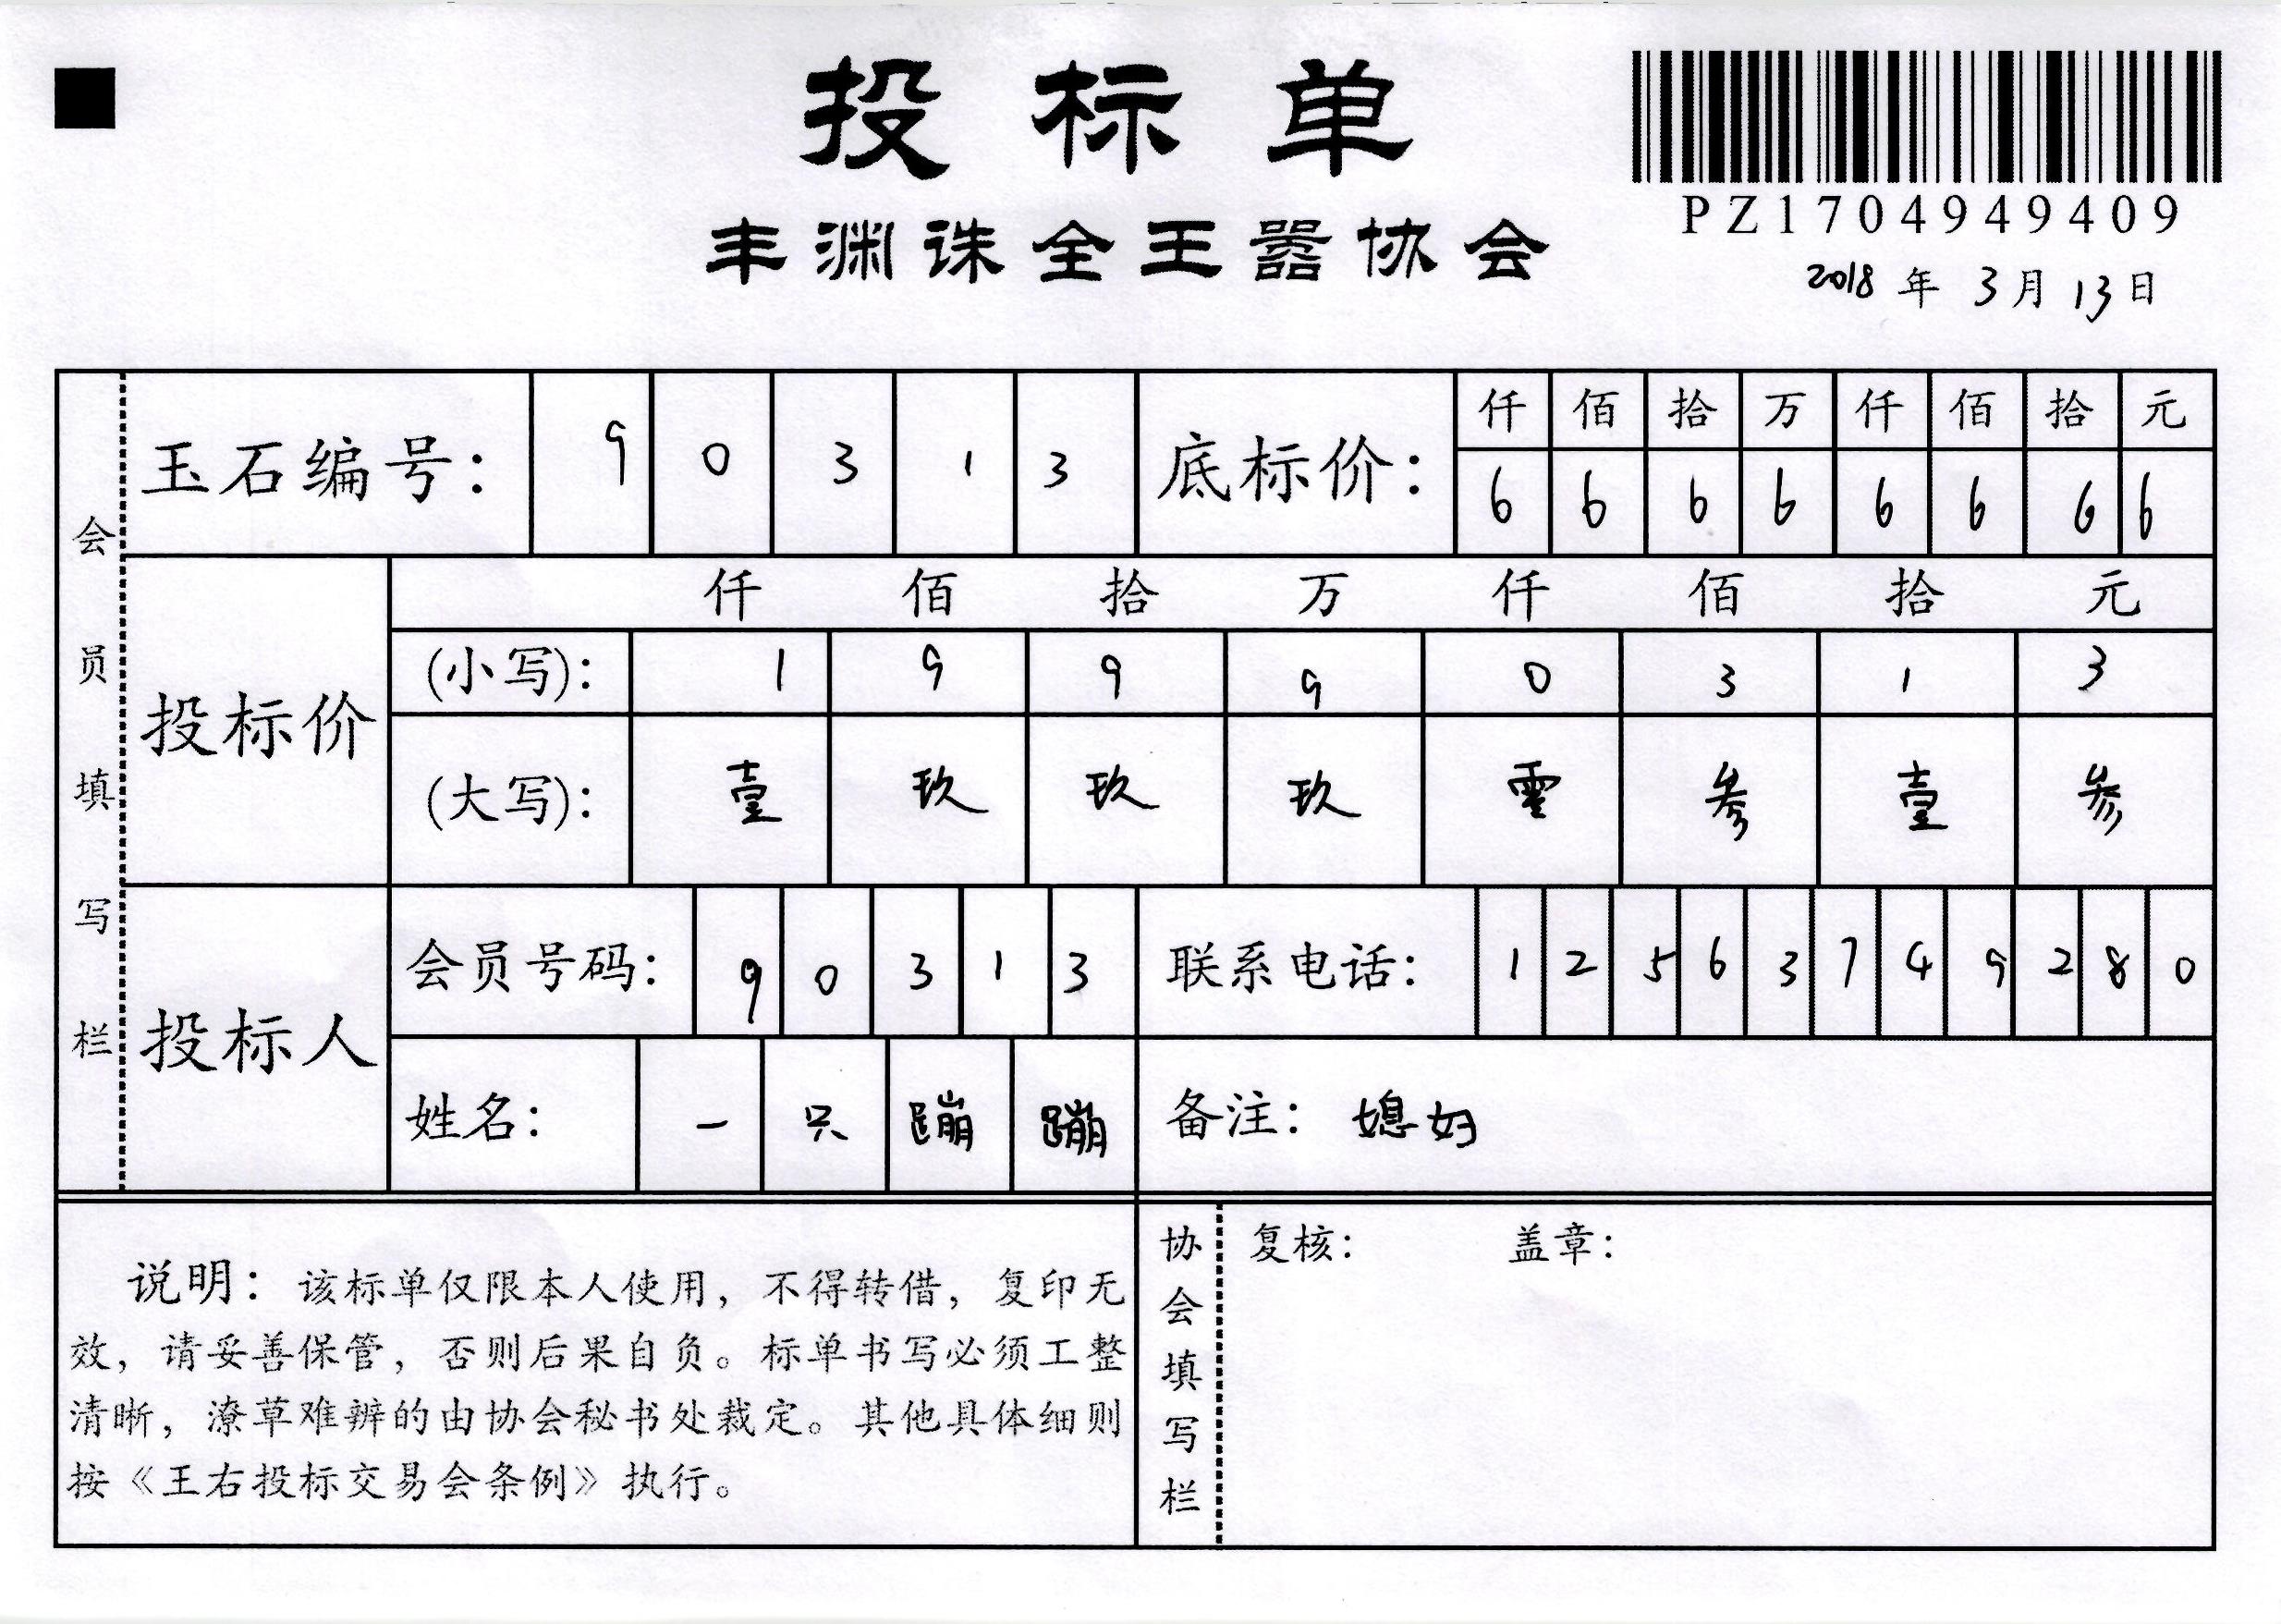 投标单
PZ1704949409
丰渊诛全王嚣协会
2018 年 3 月 13 日
会员填写栏
玉石编号： 9 0 3 1 3
底标价： 仟 佰 拾 万 仟 佰 拾 元
6 6 6 6 6 6 6 6
投标价
仟 佰 拾 万 仟 佰 拾 元
(小写)： 1 9 9 9 0 3 1 3
(大写)： 壹 玖 玖 玖 零 叁 壹 叁
投标人
会员号码： 9 0 3 1 3
联系电话： 1 2 5 6 3 7 4 9 2 8 0
姓名： 一 只 蹦 蹦
备注： 媳妇
说明：该标单仅限本人使用，不得转借，复印无
效，请妥善保管，否则后果自负。标单书写必须工整
清晰，潦草难辨的由协会秘书处裁定。其他具体细则
按《王右投标交易会条例》执行。
协会填写栏
复核： 盖章：